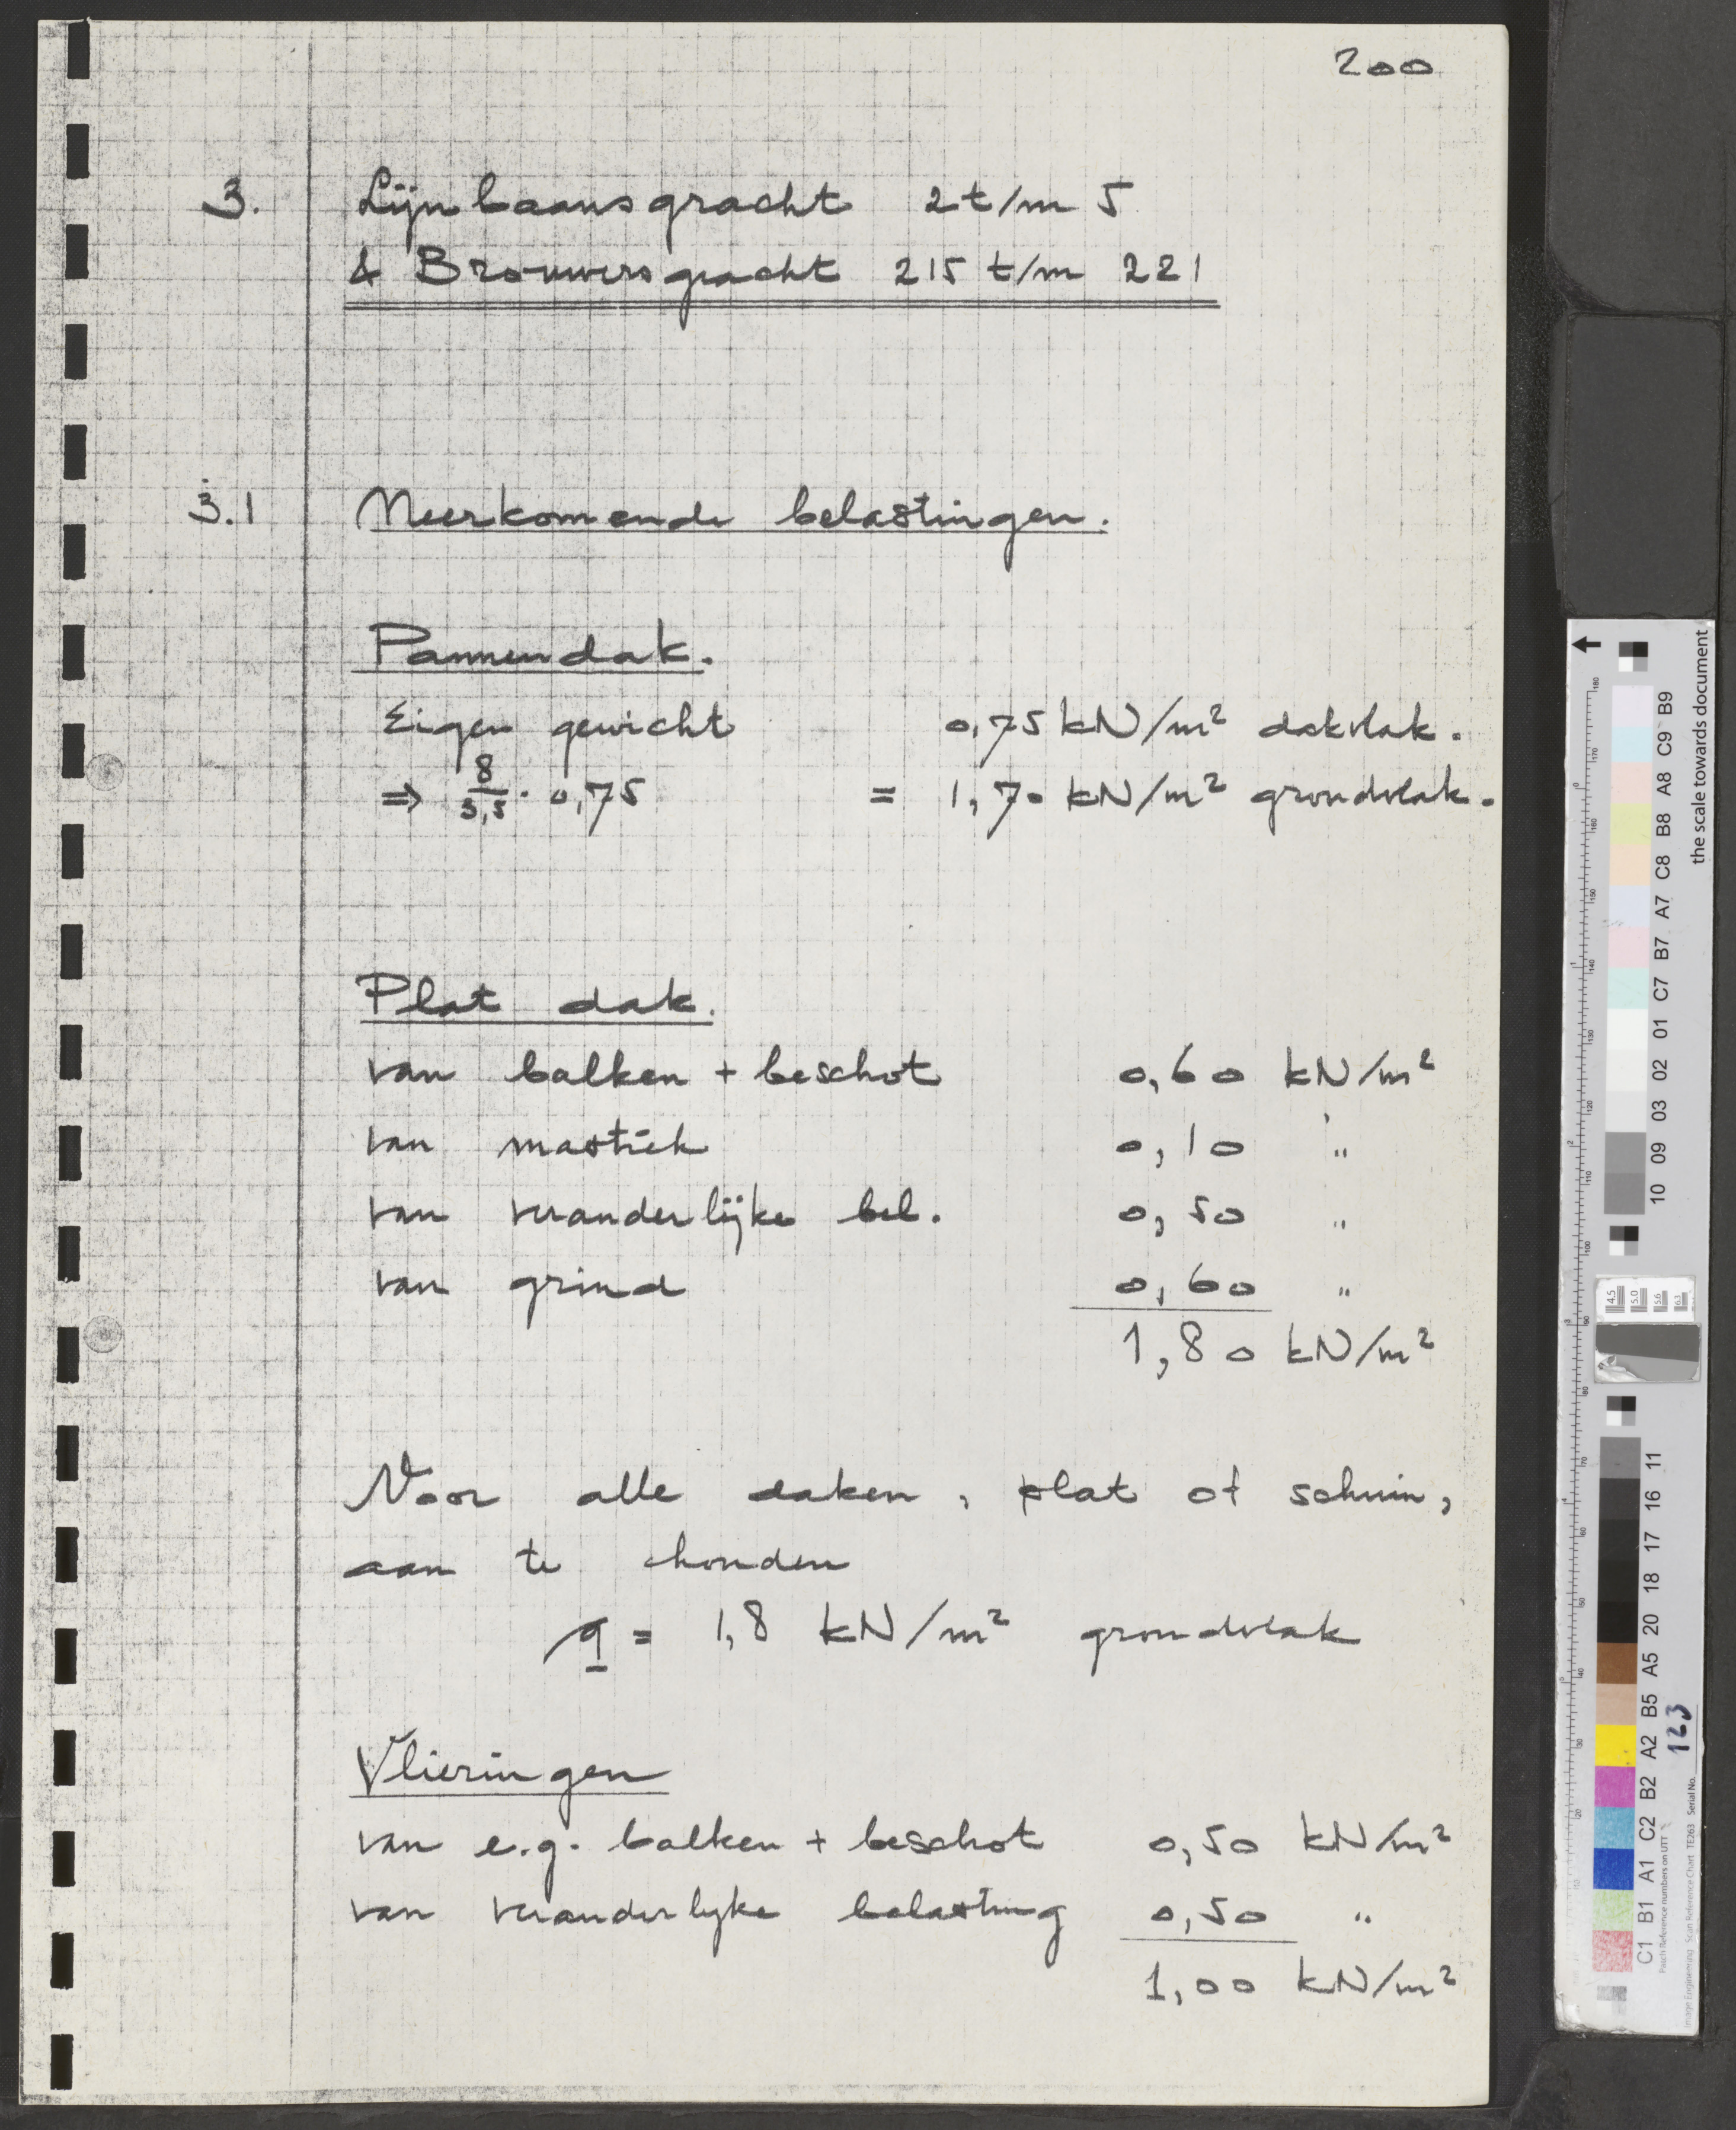 200
3. Lijnbaansgracht 2 t/m 5
& Brouwersgracht 215 t/m 221
3.1 Neerkomende belastingen.
Pannendak.
Eigen gewicht 0,75 kN/m² dakvlak.
⇒ 8/3,5 · 0,75 = 1,70 kN/m² grondvlak.
Plat dak.
van balken + beschot 0,60 kN/m²
van mastiek 0,10 "
van veranderlijke bel. 0,50 "
van grind 0,60 "
1,80 kN/m²
Voor alle daken, plat of schuin,
aan te houden
q = 1,8 kN/m² grondvlak
Vlieringen
van e.g. balken + beschot 0,50 kN/m²
van veranderlyke belasting 0,50 "
1,00 kN/m²
the scale towards document
B9 C9 A8 B8 C8 A7 B7 C7 01 02 03 09 10
11 16 17 18 20 A5 B5 A2 B2 C2 A1 B1 C1
Image Engineering Scan Reference Chart TE263 Serial No. 123
Patch Reference numbers on UTT